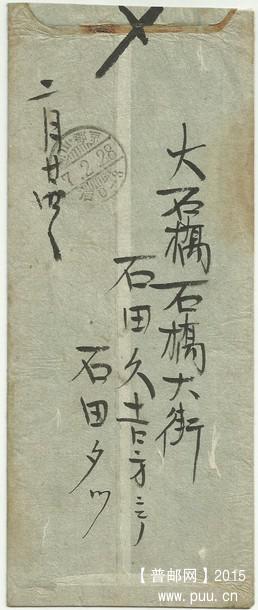 大石橋石橋大街
石田久吉方ニテ
石田タツ
二月廿四日
7.2.28
【普邮网】2015
www.puu.cn